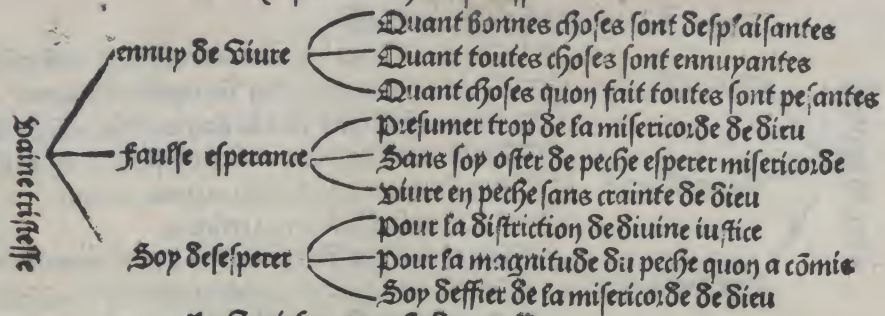 Vaine tristesse
ennuy de viure
Quant bonnes choses sont desplaisantes
Quant toutes choses sont ennuyantes
Quant choses quon fait toutes sont pesantes
faulse esperance
Presumer trop de la misericorde de dieu
Sans soy oster de peche esperer misericorde
viure en peche sans crainte de dieu
Soy desesperer
Pour la distriction de diuine iustice
Pour la magnitude du peche quon a cõmis
Soy deffier de la misericorde de dieu